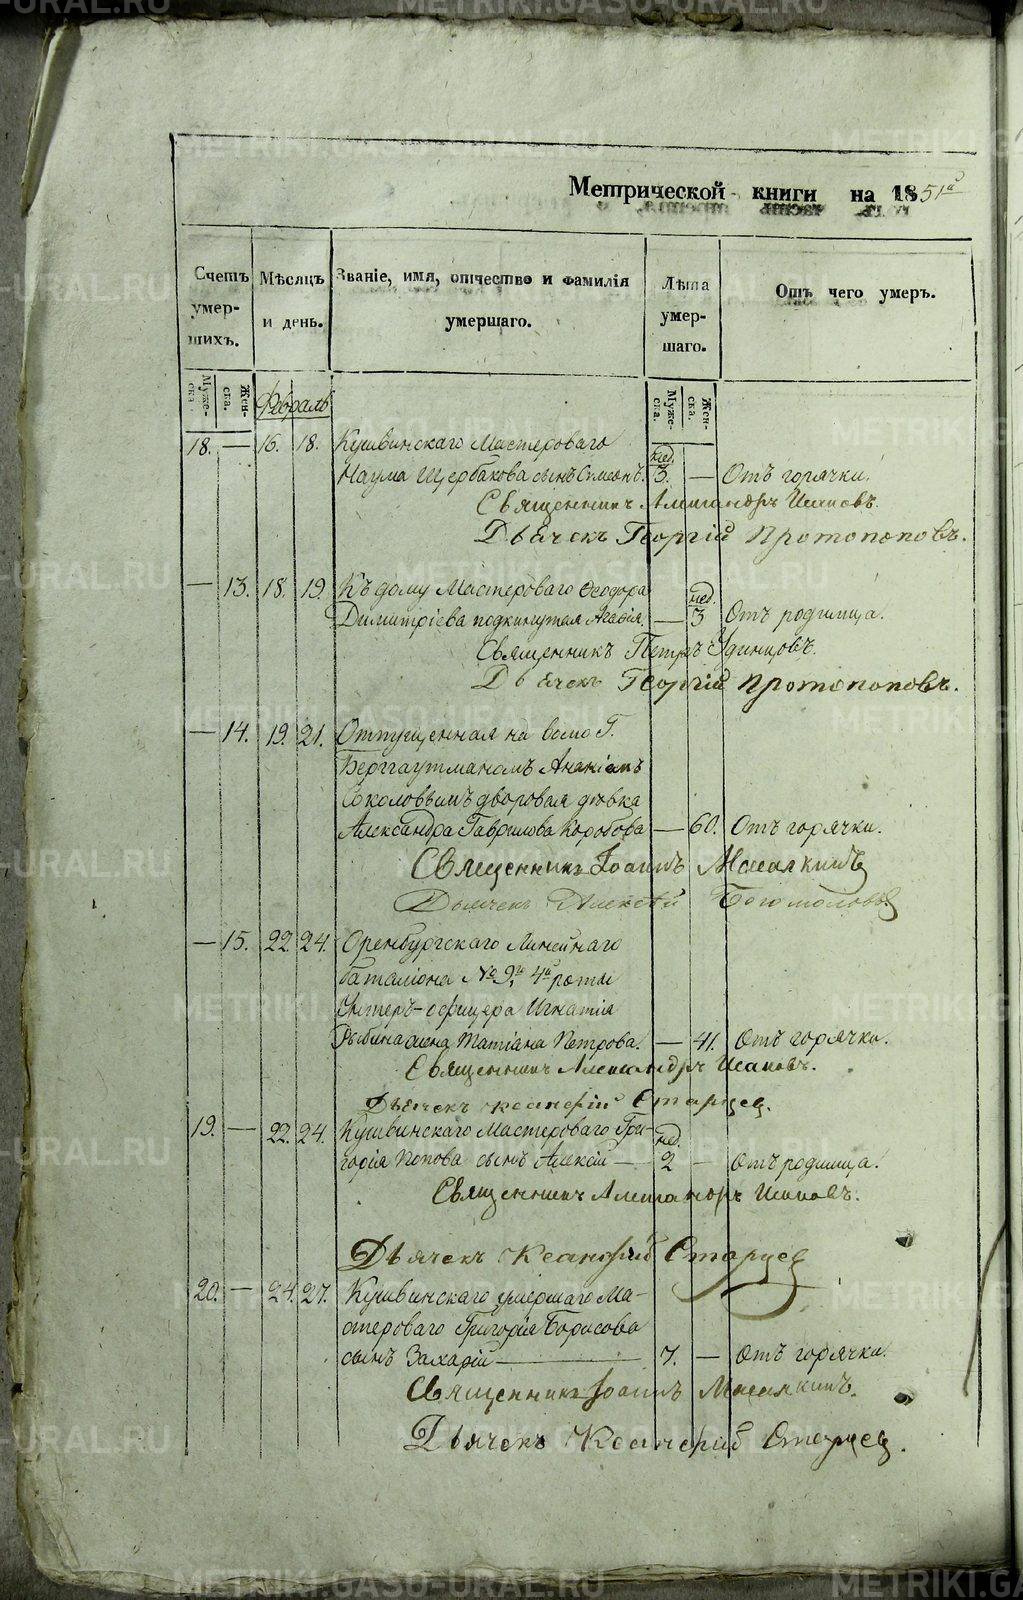 Метрической книги на 1851й
Счетъ умер-шихъ.
Мѣсяцъ и день.
Званіе, имя, отчество и фамилія умершаго.
Лѣта умер-шаго.
Отъ чего умеръ.
Муже-ска.
Жен-ска.
Февраль
Муже-ска.
Жен-ска.
18. — 16. 18. Кушвинскаго Мастероваго
Наума Щербакова сынъ Симеонъ. нед. 3. — Отъ горячки.
Священникъ Александръ Исаковъ.
Дьячекъ Георгій Протопоповъ.
— 13. 18. 19. Къ дому Мастероваго Ѳеодора
Димитріева подкинутая Агаѳія. — нед. 3 Отъ родимца.
Священникъ Петръ Удинцовъ.
Дьячекъ Георгій Протопоповъ.
— 14. 19. 21. Отпущенная на волю Г.
Берггауптманомъ Ананіемъ
Соколовымъ дворовая дѣвка
Александра Гаврилова Коробова — 60. Отъ горячки.
Священникъ Іоаннъ
Дьячекъ Алексѣй Богомоловъ
— 15. 22. 24. Оренбургскаго Линейнаго
баталіона № 9, 4й роты
Унтеръ-офицера Игнатія
Рыбина жена Татіана Петрова. — 41. Отъ горячки.
Священникъ Александръ Исаковъ.
Дьячекъ Ксанфій Старцев.
19. — 22. 24. Кушвинскаго Мастероваго Гри-
горія Попова сынъ Алексій — нед. 2 — Отъ родимца.
Священникъ Александръ Исаковъ.
Дьячекъ Ксанфій Старцев
20. — 24. 27. Кушвинскаго умершаго Ма-
стероваго Григорія Борисова
сынъ Захарій — 7. — Отъ горячки.
Священникъ Іоаннъ
Дьячекъ Ксанфій Старцев.